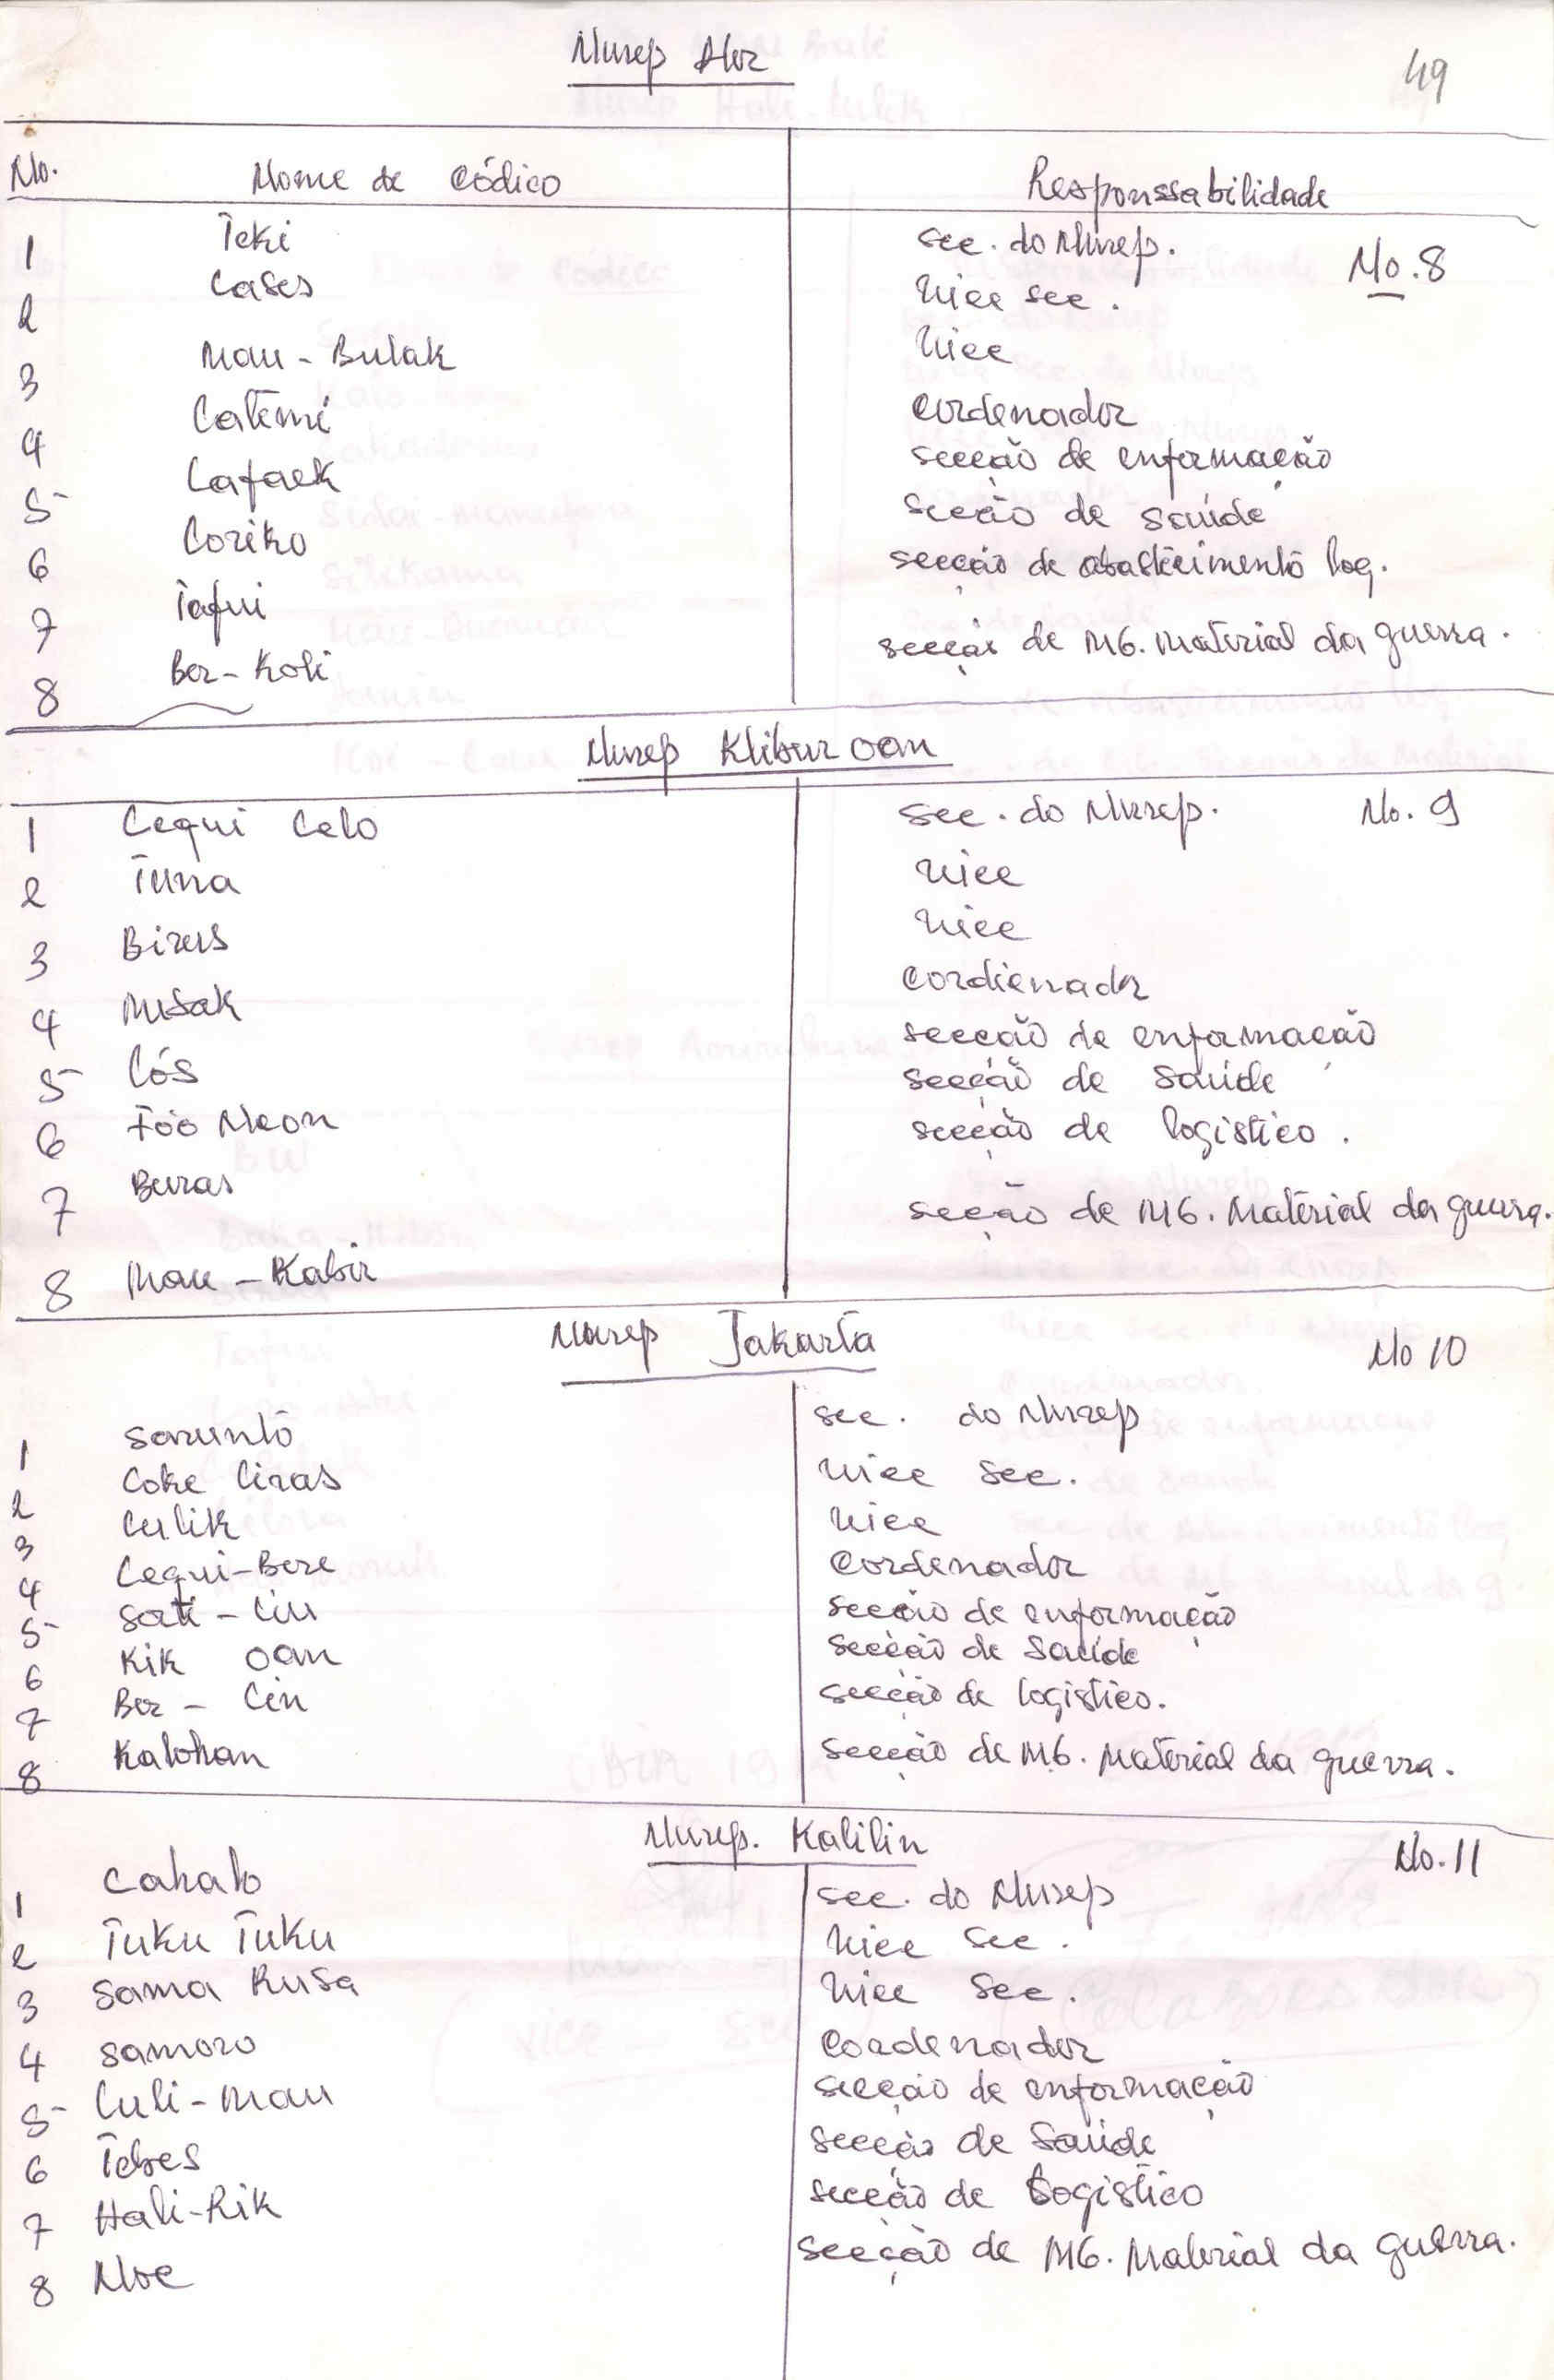 Nurep Alor
49
No. Nome de Códico Responssabilidade
1 Teki sec. do Nurep. No.8
2 Cases vice sec.
3 Mau - Bulak vice
4 Catemi cordenador
5 Lafaek secção de enformação
6 Coriko secção de saúde
7 Tafui secção de abastecimento log.
8 Ber - Koli secção de MG. Material da guerra.
Nurep Klibur oan
1 Lequi Celo sec. do Nurep. No. 9
2 Tuna vice
3 Birus vice
4 Musak cordienador
5 Cós secção de enformacão
6 Fóo Neon secção de saúde
7 Buras secção de logistico.
8 Mau - Kabir secção de MG. Material da guerra.
Nurep Jakarta No 10
1 Sarunto sec. do Nurep
2 Coke Ciras vice sec.
3 Culik vice
4 Lequi-Bere cordenador
5 Sati - Liu secção de enformação
6 Kik oan secção de Saúde
7 Ber - Cin secção de logistico.
8 Kalohan secção de MG. Material da guerra.
Nurep. Kalilin No.11
1 Cahalo sec. do Nurep
2 Tuku Tuku vice sec.
3 Sama Rusa vice sec.
4 Samoro coadenador
5 Culi - Mau secção de enformação
6 Tebes secção de Saúde
7 Hali-Rik secção de Logistico
8 Noe secção de MG. Material da guerra.